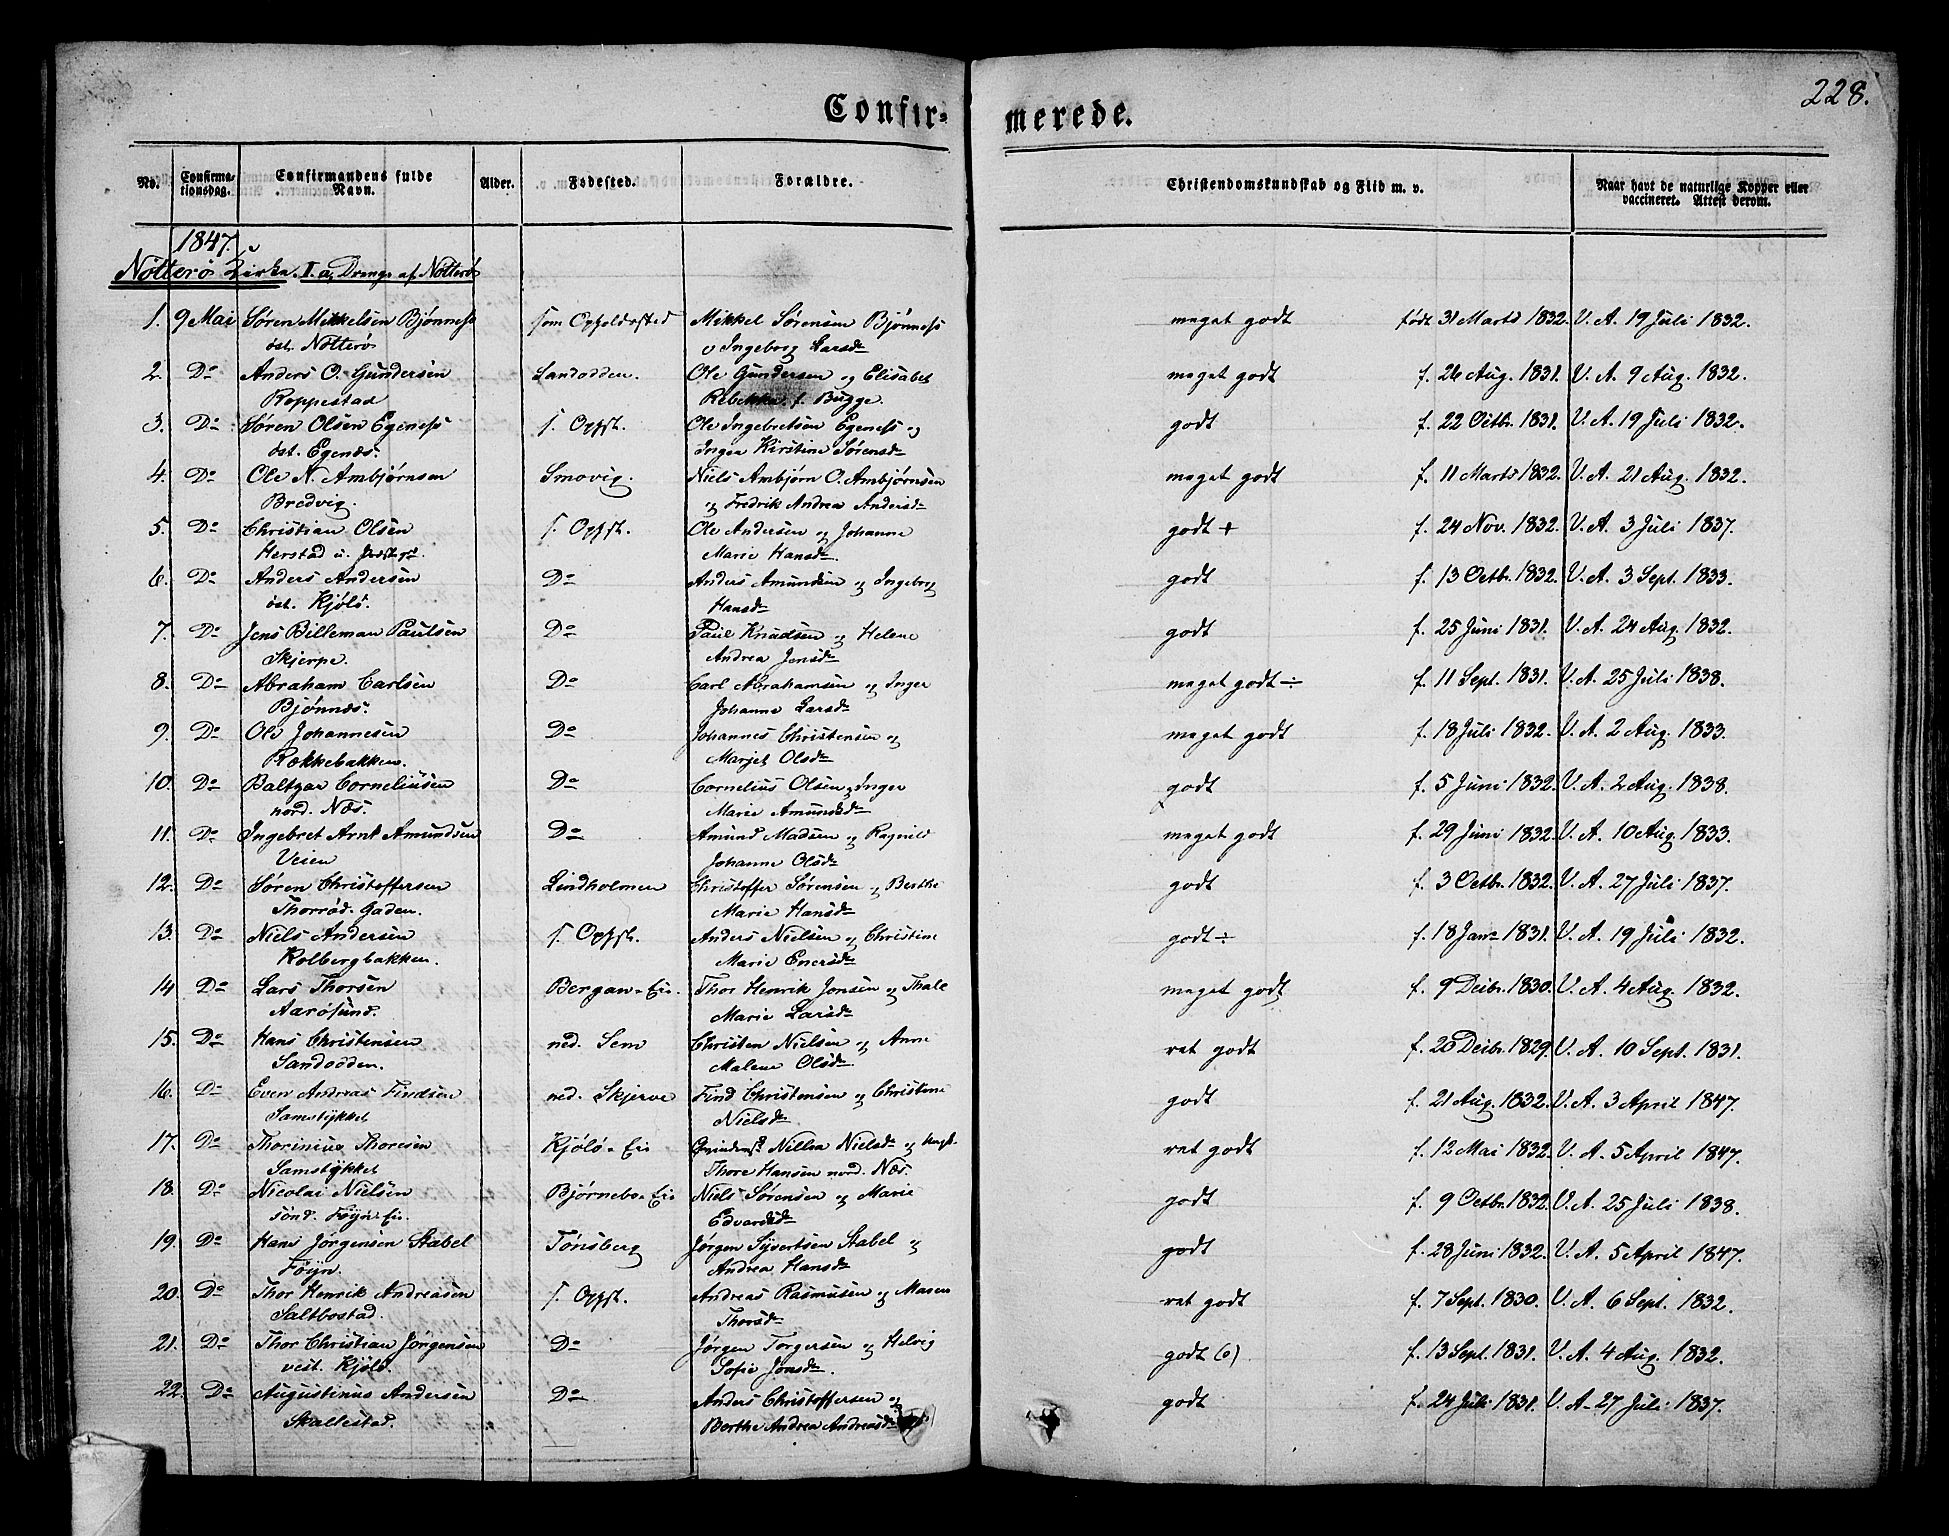 228.
Confir- merede.
No. Confirma- tionsdag. Confirmandens fulde Navn. Alder. Fødested. Forældre. Christendomskundskab og Flid m. v. Naar havt de naturlige Kopper eller vaccineret. Attest derom.
1847.
Nötterö Kirke. I. a, Drenge af Nötterö
1. 9 Mai Søren Mikkelsen Bjönness som Opholdssted Mikkel Sörensen Bjönness meget godt født 31 Marts 1832. V. A. 19 Juli 1832.
öst. Nötterö o Ingeborg Larsd
2. Do Anders O. Gundersen Sandodden. Ole Gundersen og Elisabet meget godt f. 26 Aug. 1831. V. A. 9 Aug. 1832.
Roppestad Rebekka f. Bugge.
3. Do Søren Olsen Egeness s. Opfst. Ole Ingebretsen Egeness og godt f. 22 Octbr. 1831. V. A. 19 Juli 1832.
öst. Egenæs. Inger Kirstine Sörensd
4. Do Ole N. Ambjørnsen Smovig. Niels Ambjörn O. Ambjörnsen meget godt f. 11 Marts 1832. V. A. 21 Aug. 1832.
Bredvig. og Fredrik Andrea Andersd
5. Do Christian Olsen s. Opfst. Ole Andersen og Johanne godt + f. 24 Nov. 1832. V. A. 3 Juli 1837.
Herstad u. Marie Hansd
6. Do Anders Andersen Do Anders Amundsen og Ingeborg godt f. 13 Octbr. 1832. V. A. 3 Sept. 1833.
öst. Kjölö. Hansd
7. Do Jens Billeman Paulsen Do Paul Knudsen og Helene godt f. 25 Juni 1831. V. A. 24 Aug. 1832.
Skjerpe. Andrea Jensd
8. Do Abraham Carlsen Do Carl Abrahamsen og Inger meget godt ÷ f. 11 Sept. 1831. V. A. 25 Juli 1838.
Bjönnæs. Johanne Larsd
9. Do Ole Johannesen Do Johannes Christensen og meget godt f. 18 Juli 1832. V. A. 2 Aug. 1833.
Rækkebakken. Marjet Olsd
10. Do Baltzar Corneliusen Do Cornelius Olsen og Inger godt f. 5 Juni 1832. V. A. 2 Aug. 1838.
nord. Næs. Marie Amundsd
11. Do Ingebret Arnt Amundsen Do Amund Madsen og Ragnild meget godt f. 29 Juni 1832. V. A. 10 Aug. 1833.
Veien Johanne Olsd
12. Do Søren Christoffersen Lindholmen Christoffer Sörensen og Berthe godt f. 3 Octbr. 1832. V. A. 27 Juli 1837.
Thorröd. Gaden. Marie Hansd
13. Do Niels Andersen s. Opfst. Anders Nielsen og Christine godt ÷ f. 18 Jan. 1831. V. A. 19 Juli 1832.
Kolbergbakken. Marie Enersd
14 Do Lars Thorsen Bergan-Eie. Thor Henrik Jonsen og Thale meget godt f. 9 Decbr. 1830. V. A. 4 Aug. 1832.
Aarösund. Marie Larsd
15. Do Hans Christensen ned. Sem Christen Nielsen og Anne ret godt f. 20 Decbr. 1829. V. A. 10 Sept. 1831.
Sandodden. Malene Olsd
16. Do Even Andreas Findsen ned. Skjerve Find Christensen og Christine godt f. 21 Aug. 1832. V. A. 3 April 1847.
Samstykket Nielsd
17. Do Thorinius Thoresen Kjölö-Eie Nillea Nielsd og Ungk. ret godt f. 12 Mai 1832. V. A. 5 April 1847.
Samstykket Thore Hansen nord. Næs.
18. Do Nicolai Nielsen Björnebo-Eie Niels Sörensen og Marie godt f. 9 Octbr. 1832. V. A. 25 Juli 1838.
sönd. Föyn-Eie. Edvardsd
19. Do Hans Jörgensen Stabel Tönsberg Jörgen Syvertsen Stabel og godt f. 28 Juni 1832. V. A. 5 April 1847.
Föyn. Andrea Hansd
20. Do Thor Henrik Andreasen s. Opfst. Andreas Rasmusen og Maren ret godt f. 7 Sept. 1830. V. A. 6 Sept. 1832.
Saltbostad. Thorsd
21. Do Thor Christian Jörgensen Do Jörgen Torgersen og Helvig godt (o) f. 13 Sept. 1831. V. A. 4 Aug. 1832.
vest. Kjölö. Sofie Jonsd
22. Do Augustinus Andersen Do Anders Christoffersen og godt f. 24 Juli 1831. V. A. 27 Juli 1837.
Skallestad. Berthe Andrea Andreasd